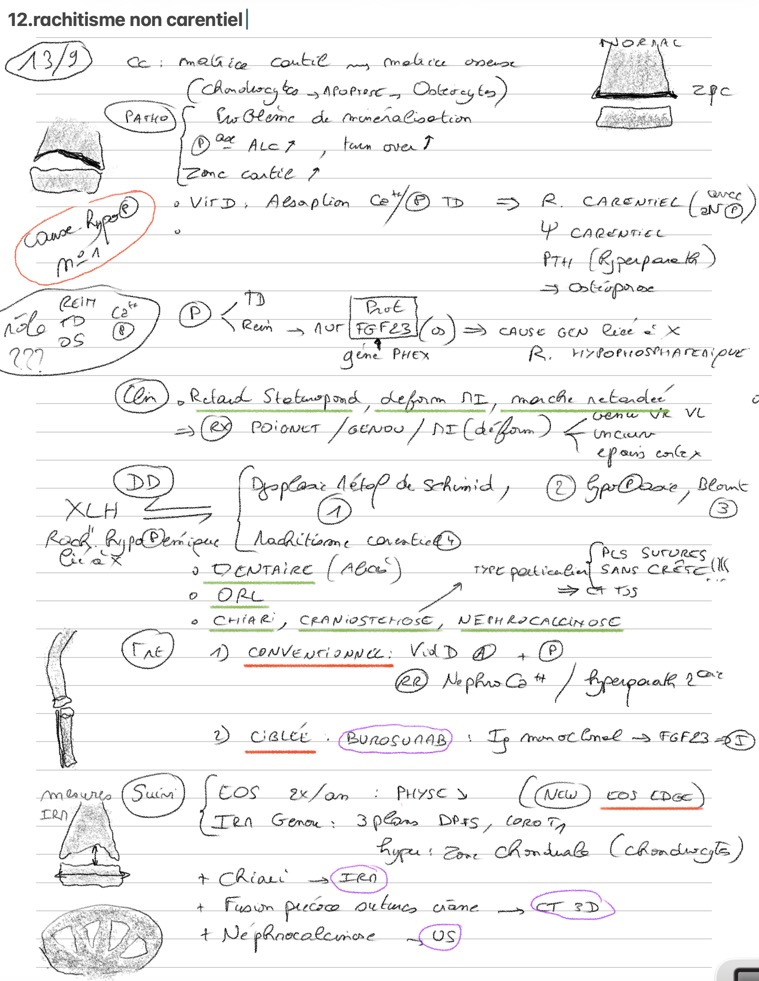 12.rachitisme non carentiel
13/9
Cc : matrice cartil → matrice osseuse
(Chondrocytes → APOPTOSE → Osteocytes)
NORMAL
ZPC
PATHO
Problème de minéralisation
(P) ase ALC ↑, turn over ↑
Zone cartil ↑
Cause hypo (P)
n° 1
• Vit D : Absorption Ca++/(P) TD ⇒ R. CARENTIEL (avec
Ψ CARENTIEL
PTH (hyperparath)
⇒ Ostéoporose
rôle REIN Ca++
TD (P)
OS
???
(P) < TD
Rein → Prot
FGF23 (os) ⇒ CAUSE GEN liée à X
gène PHEX R. HYPOPHOSPHATEMIQUE
Clin • Retard Staturopond, déform MI, marche retardée
⇒ (RX) POIGNET / GENOU / MI (déform) < genu VR VL
incurv
épais cortex
DD
XLH
Rach. hypo(P)émique
lié à X
Dysplasie métaph de Schmid, (1)
(2) hypo(P)asie, Blount (3)
Rachitisme carentiel (4)
• DENTAIRE (Abcès)
• ORL
• CHIARI, CRANIOSTENOSE, NEPHROCALCINOSE
TYPE particulier
PLS SUTURES
SANS CRÊTE !!!
⇒ CT TSS
Trt 1) CONVENTIONNEL : Vit D + (P)
(RR) Nephro Ca++ / hyperparath 2aire
2) CIBLÉE . BUROSUMAB : Ig monoclonal → FGF23 ⇒ (I)
mesures
IRM
Suivi
EOS 2x/an : PHYSE ↘ (NEW) EOS EDGE)
IRM Genou : 3 plans DPFS, CORO T1
hyper : Zone Chondrale (chondrocytes)
+ Chiari → IRM
+ Fusion précoce sutures crâne → CT 3D
+ Néphrocalcinose → US